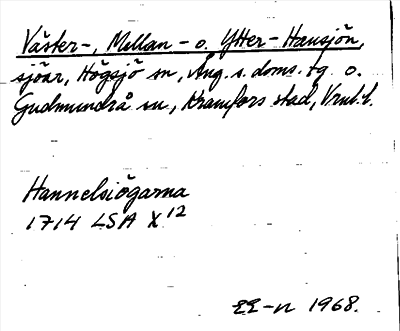 Väster-, Mellan- o. Ytter-Hansjön,
sjöar, Högsjö sn, Ång. s. doms. tg o.
Gudmundrå sn, Kramfors stad, Vnrl. l.
Hannelsiögarna
1714 LSA X 12
EE-n 1968.